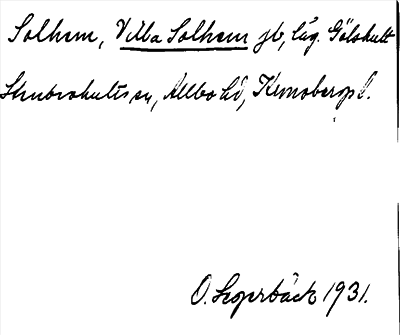 Solhem, Villa Solhem jb, låg. Gölshult
Stenbrohults sn, Allbo hd, Kronobergs l.
O. Sporrbäck 1931.